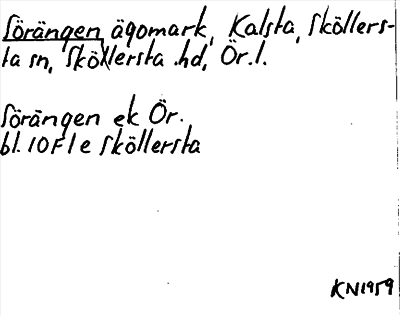 Sörängen ägomark, Kalsta, Sköllers-
ta sn, Sköllersta hd, Ör.l.
Sörängen ek Ör.
bl. 10F1e Sköllersta
KN1959